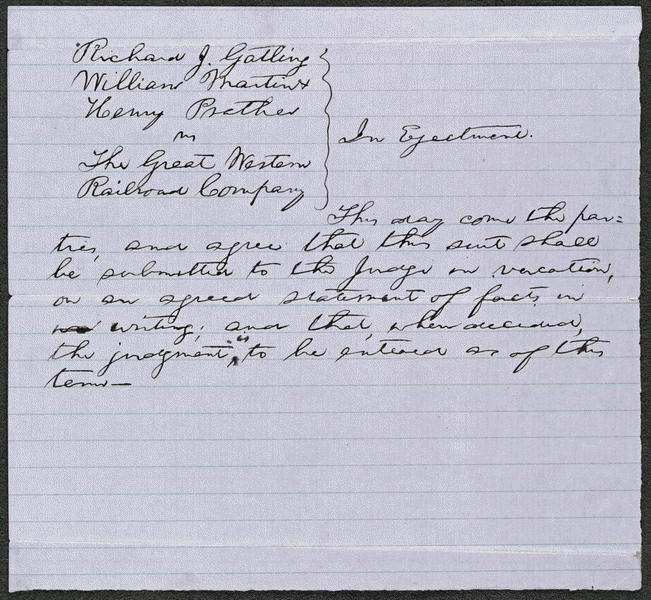 Richard J. Gatling
William Martin &
Henry Prather
vs
The Great Western
Railroad Company
In Ejectment.
This day come the par=
ties, and agree that this suit shall
be submitted to the Judge in vacation,
on an agreed statement of facts in
writing; and that, when decided,
the judgment is to be entered as of this
term—